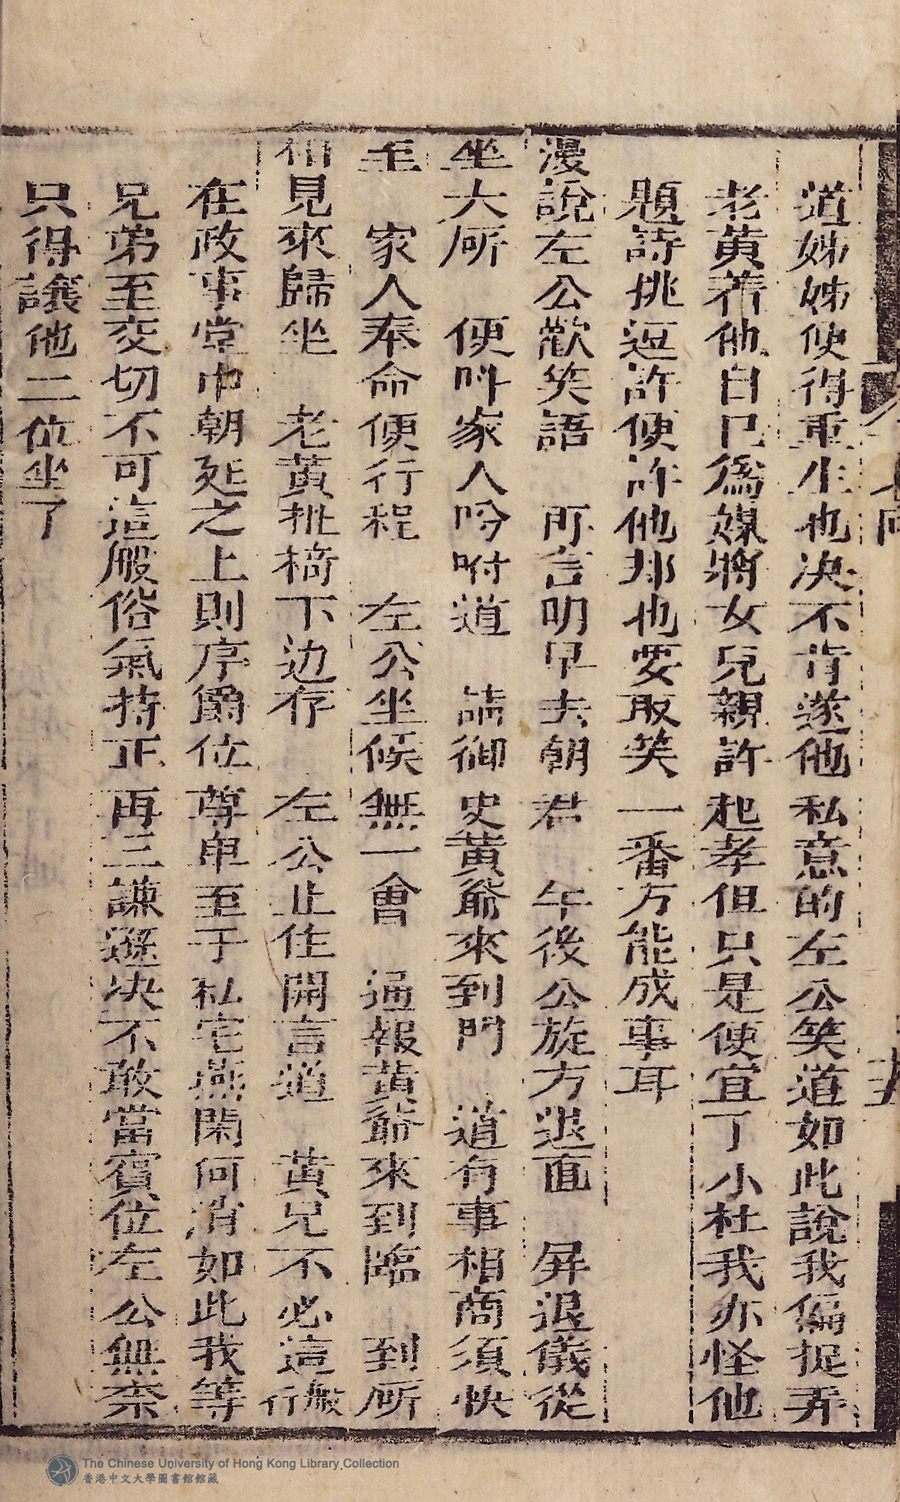 道姊姊使得重生也决不肯遂他私意的左公笑道如此說我偏捉弄
老黄着他自已爲媒將女兒親許起孝但只是便宜了小杜我亦怪他
題詩挑逗許便許他却也要取笑一番方能成事耳
漫說左公歡笑語 所言明早去朝君 午後公旋方退直 屏退儀從
坐大所 便呌家人吟咐道 請御史黄爺來到門 道有事相商須快
至 家人奉命便行程 左公坐候無一會 通報黄爺來到臨 到所
相見來歸坐 老黄扯椅下边存 左公止住開言道 黄兄不必這般行
在政事堂中朝廷之上則序爵位尊卑至于私宅燕閑何消如此我等
兄弟至交切不可這般俗氣持正再三謙遜决不敢當賓位左公無柰
只得讓他二位坐了
The Chinese University of Hong Kong Library Collection
香港中文大學圖書館館藏